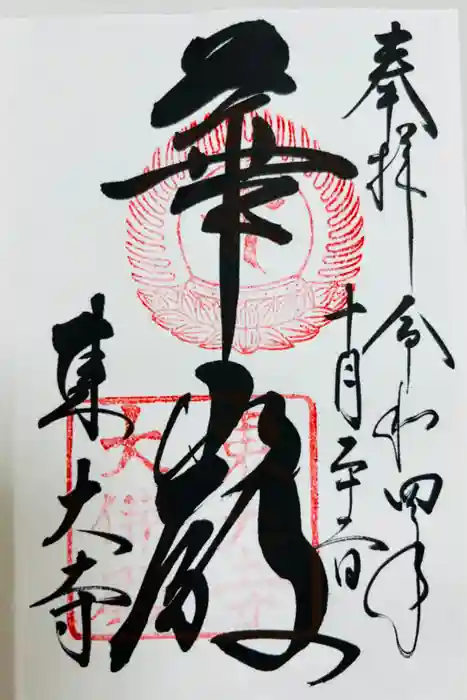 奉拝
令和四年
十月二十六日
華厳
東大寺